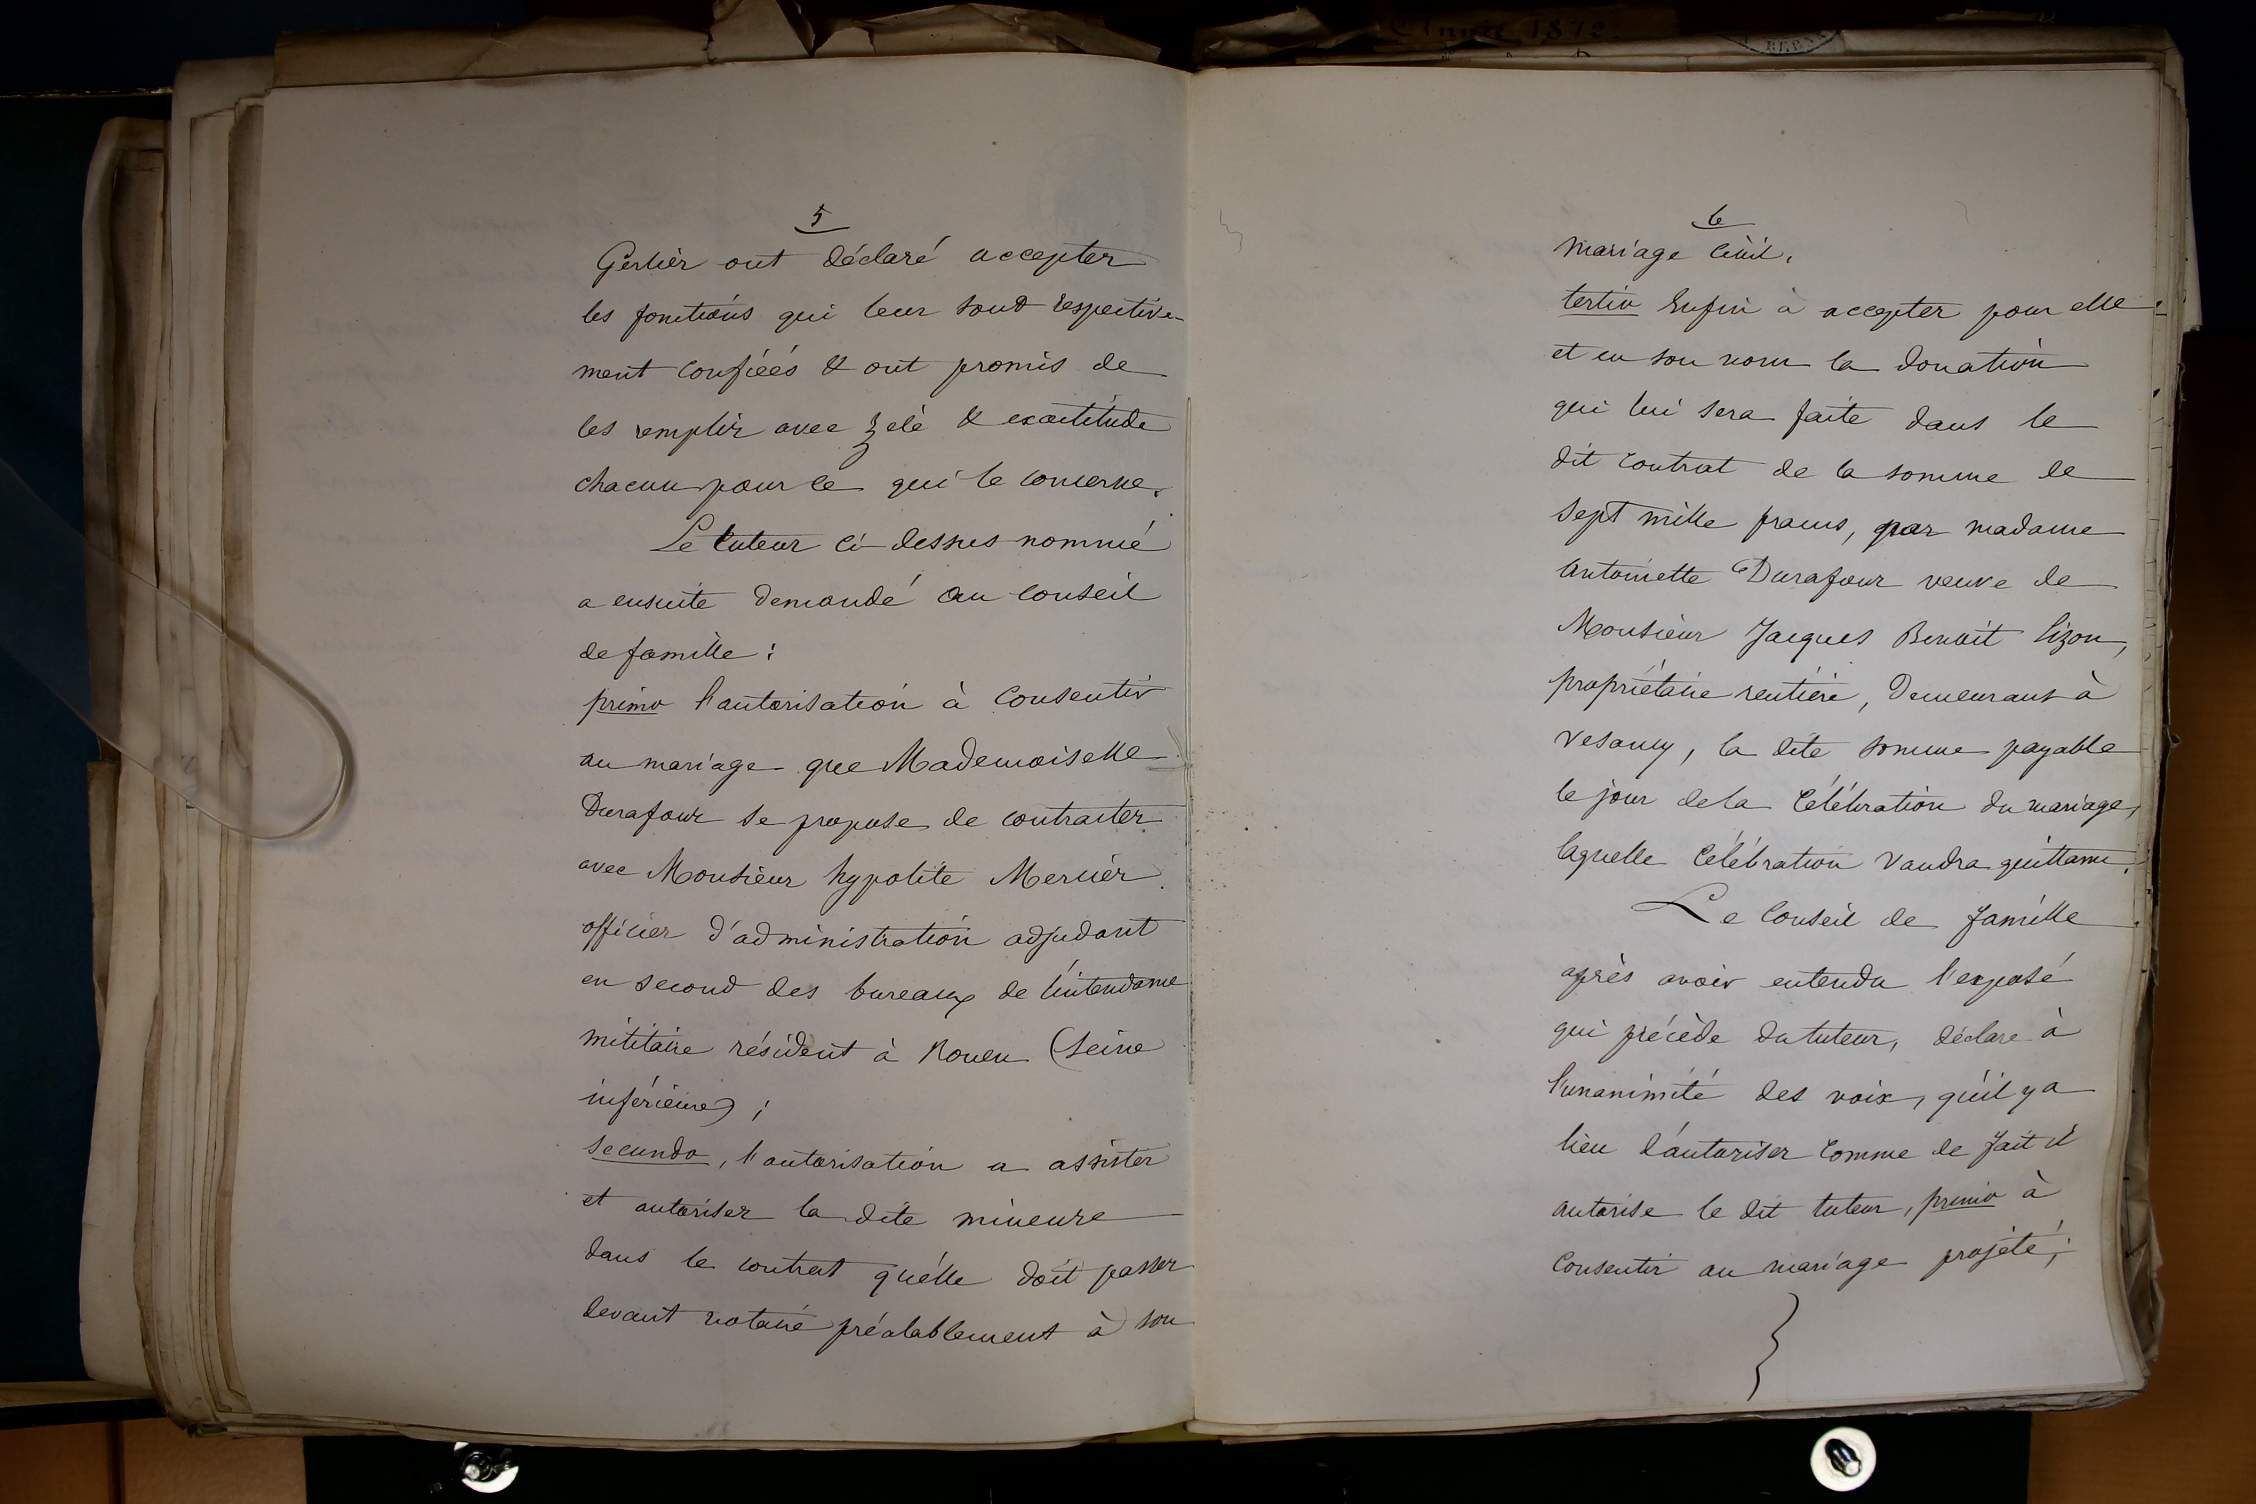 Année 1872.
5
Gerlier ont déclaré accepter
les fonctions qui leur sont respective-
ment confiées & ont promis de
les remplir avec zèle & exactitude
chacun pour ce qui le concerne.
Le tuteur ci-dessus nommé
a ensuite demandé au Conseil
de famille :
primo l'autorisation à consentir
au mariage que Mademoiselle
Durafour se propose de contracter
avec Monsieur hypolite Mercier
officier d'administration adjudant
en second des bureaux de l'intendance
militaire résident à Rouen (Seine
inférieure) ;
Secundo, l'autorisation a assister
et autoriser la dite mineure
dans le contrat qu'elle doit passer
devant notaire préalablement à son
6
mariage civil.
tertio Enfin à accepter pour elle
et en son nom la donation
qui lui sera faite dans le
dit contrat de la somme de
sept mille francs, par madame
Antoinette Durafour veuve de
Monsieur Jacques Benoit Lizon,
propriétaire rentière, demeurant à
Vesancy, la dite somme payable
le jour de la Célébration du mariage,
laquelle Célébration vaudra quittance.
Le Conseil de famille
après avoir entendu l'exposé
qui précède du tuteur, déclare à
l'unanimité des voix, qu'il y a
lieu d'autoriser comme de fait il
autorise le dit tuteur, primo à
consentir au mariage projeté ;